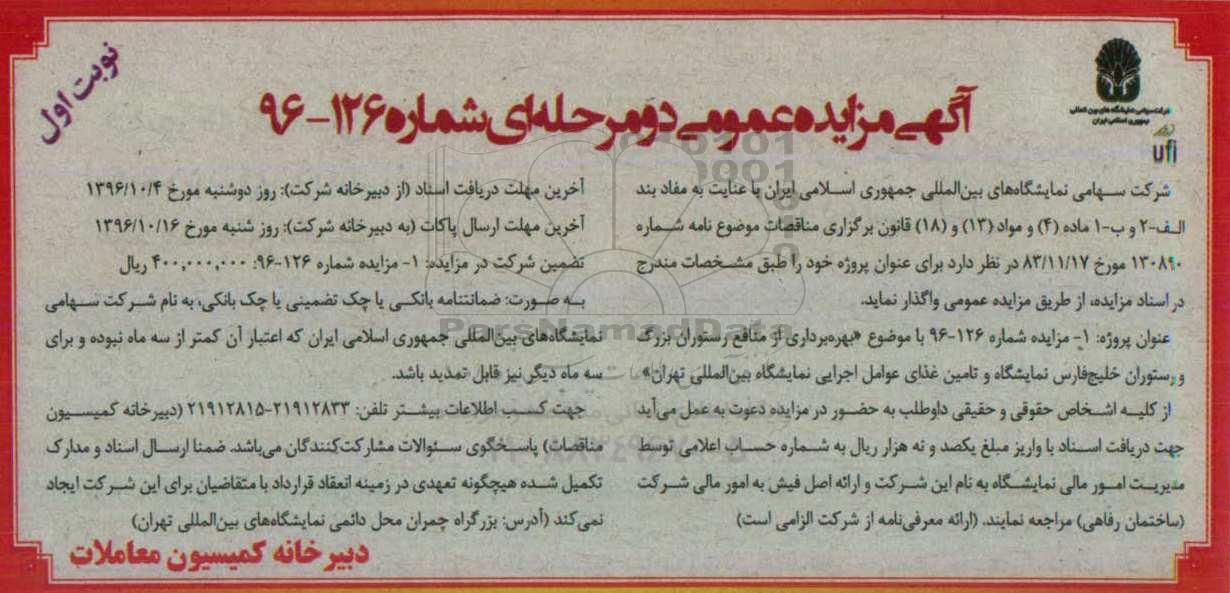 نوبت اول
شرکت سهامی نمایشگاه های بین المللی
جمهوری اسلامی ایران
ufi
آگهی مزایده عمومی دو مرحله‌ای شماره ۱۲۶-۹۶
شرکت سهامی نمایشگاه‌های بین‌المللی جمهوری اسلامی ایران با عنایت به مفاد بند
الف-۲ و ب-۱ ماده (۴) و مواد (۱۳) و (۱۸) قانون برگزاری مناقصات موضوع نامه شماره
۱۳۰۸۹۰ مورخ ۸۳/۱۱/۱۷ در نظر دارد برای عنوان پروژه خود را طبق مشخصات مندرج
در اسناد مزایده، از طریق مزایده عمومی واگذار نماید.
عنوان پروژه: ۱- مزایده شماره ۱۲۶-۹۶ با موضوع «بهره‌برداری از منافع رستوران بزرگ
و رستوران خلیج‌فارس نمایشگاه و تامین غذای عوامل اجرایی نمایشگاه بین‌المللی تهران»
از کلیه اشخاص حقوقی و حقیقی داوطلب به حضور در مزایده دعوت به عمل می‌آید
جهت دریافت اسناد با واریز مبلغ یکصد و نه هزار ریال به شماره حساب اعلامی توسط
مدیریت امور مالی نمایشگاه به نام این شرکت و ارائه اصل فیش به امور مالی شرکت
(ساختمان رفاهی) مراجعه نمایند. (ارائه معرفی‌نامه از شرکت الزامی است)
آخرین مهلت دریافت اسناد (از دبیرخانه شرکت): روز دوشنبه مورخ ۱۳۹۶/۱۰/۴
آخرین مهلت ارسال پاکات (به دبیرخانه شرکت): روز شنبه مورخ ۱۳۹۶/۱۰/۱۶
تضمین شرکت در مزایده: ۱- مزایده شماره ۱۲۶-۹۶: ۴۰۰,۰۰۰,۰۰۰ ریال
به صورت: ضمانتنامه بانکی یا چک تضمینی یا چک بانکی، به نام شرکت سهامی
نمایشگاه‌های بین‌المللی جمهوری اسلامی ایران که اعتبار آن کمتر از سه ماه نبوده و برای
سه ماه دیگر نیز قابل تمدید باشد.
جهت کسب اطلاعات بیشتر تلفن: ۲۱۹۱۲۸۳۳-۲۱۹۱۲۸۱۵ (دبیرخانه کمیسیون
مناقصات) پاسخگوی سئوالات مشارکت‌کنندگان می‌باشد. ضمنا ارسال اسناد و مدارک
تکمیل شده هیچگونه تعهدی در زمینه انعقاد قرارداد با متقاضیان برای این شرکت ایجاد
نمی‌کند (آدرس: بزرگراه چمران محل دائمی نمایشگاه‌های بین‌المللی تهران)
دبیرخانه کمیسیون معاملات
ParsNamadData